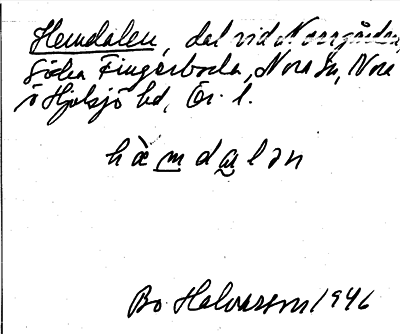 Hemdalen, dal vid Norrgården,
Södra Fingerboda, Nora sn, Nora
o Hjulsjö hd, Ör. l.
hämdalən
Bo Halvarson 1946